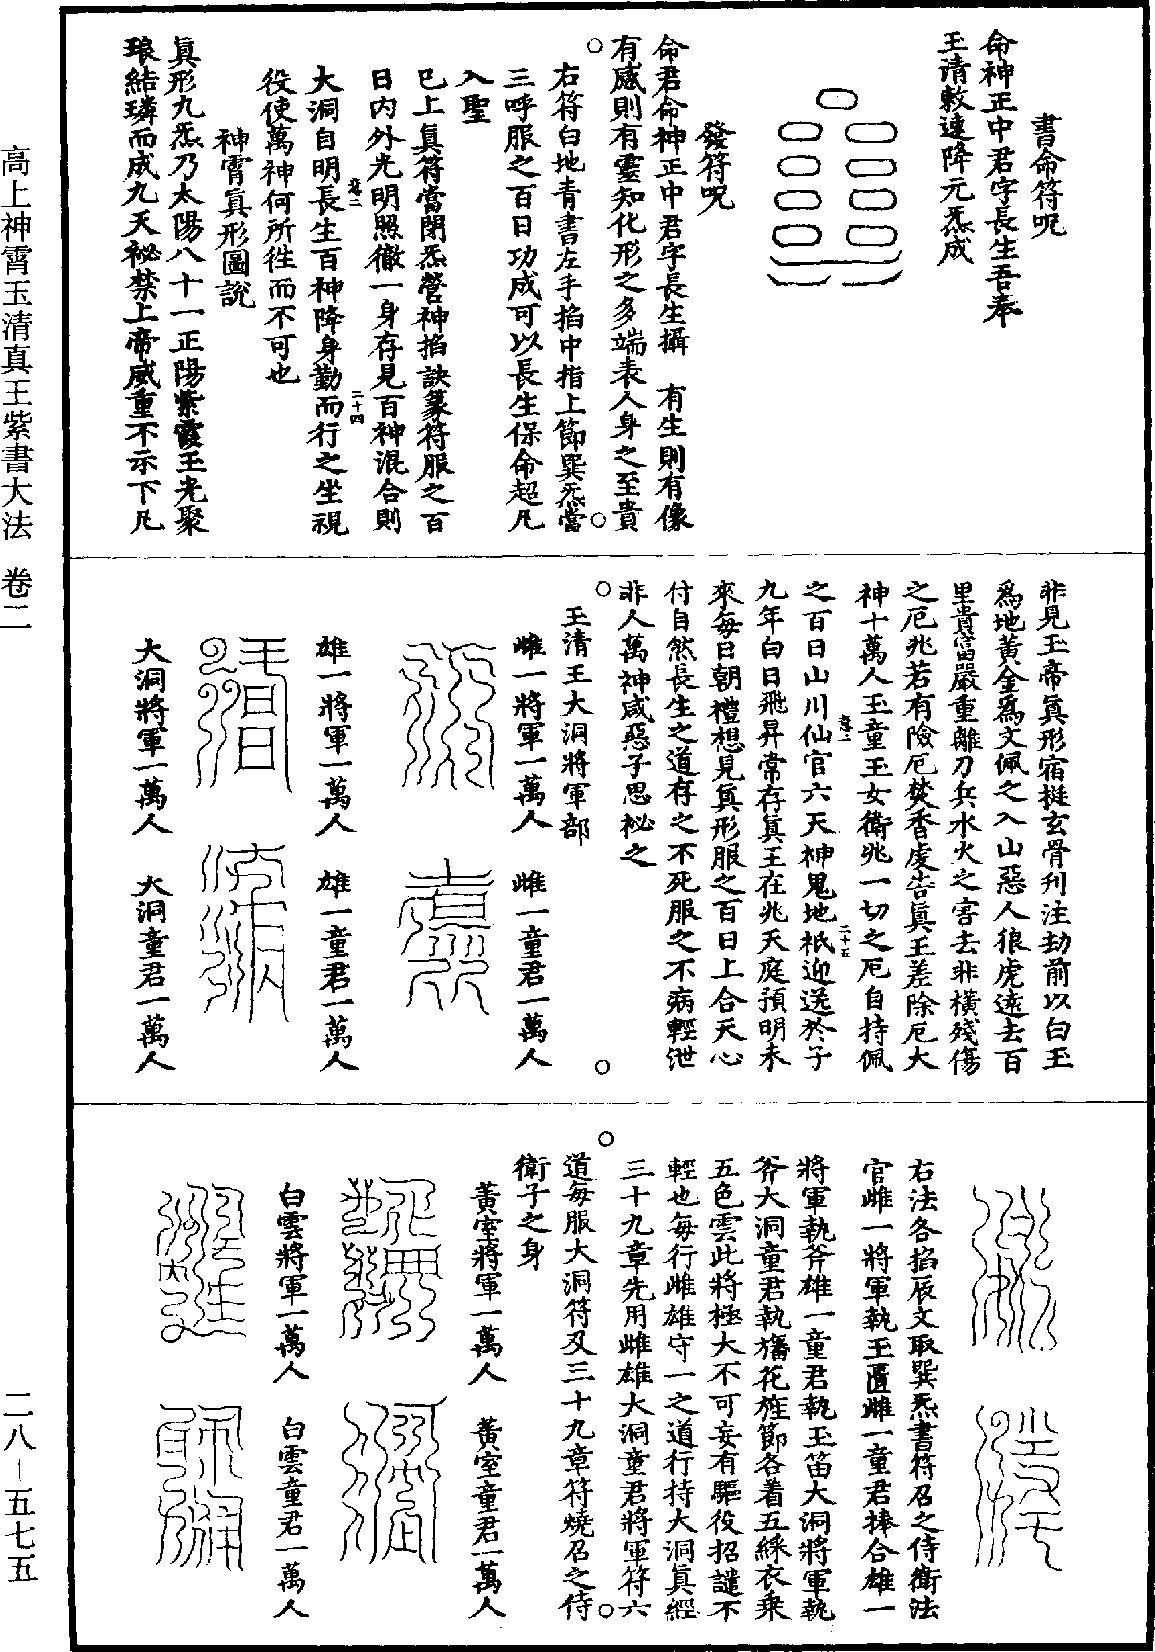 書命符呪
命神正中君字長生吾奉
玉清敕速降元炁成
發符呪
命君命神正中君字長生攝　有生則有像
有感則有靈知化形之多端表人身之至貴
右符白地青書左手掐中指上節巽炁當
三呼服之百日功成可以長生保命超凡
入聖
已上真符當閉炁營神掐訣篆符服之百
日內外光明照徹一身存見百神混合則
大洞自明長生百神降身勤而行之坐視
卷二
二十四
役使萬神何所往而不可也
神霄真形圖說
真形九炁乃太陽八十一正陽紫霞玉光聚
琅結璘而成九天祕禁上帝威重不示下凡
非見玉帝真形宿挺玄骨刋注劫前以白玉
為地黃金為文佩之入山惡人狼虎遠去百
里貴富嚴重離刀兵水火之害去非橫殘傷
之厄兆若有險厄焚香虔告真王差除厄大
神十萬人玉童玉女衛兆一切之厄自持佩
卷二
二十五
之百日山川仙官六天神鬼地祇迎送於子
九年白日飛昇常存真王在兆天庭預明未
來每日朝禮想見真形服之百日上合天心
付自然長生之道存之不死服之不病輕泄
非人萬神咸惡子思祕之
玉清王大洞將軍部
雌一將軍一萬人　雌一童君一萬人
雄一將軍一萬人　雄一童君一萬人
大洞將軍一萬人　大洞童君一萬人
右法各掐辰文取巽炁書符召之侍衛法
官雌一將軍執玉匱雌一童君捧合雄一
將軍執斧雄一童君執玉笛大洞將軍執
斧大洞童君執旛花旌節各着五綵衣乘
五色雲此將極大不可妄有驅役招譴不
輕也每行雌雄守一之道行持大洞真經
三十九章先用雌雄大洞童君將軍符六
道每服大洞符及三十九章符燒召之侍
衛子之身
黃室將軍一萬人　黃室童君一萬人
白雲將軍一萬人　白雲童君一萬人
高上神霄玉清真王紫書大法　卷二
二八－五七五